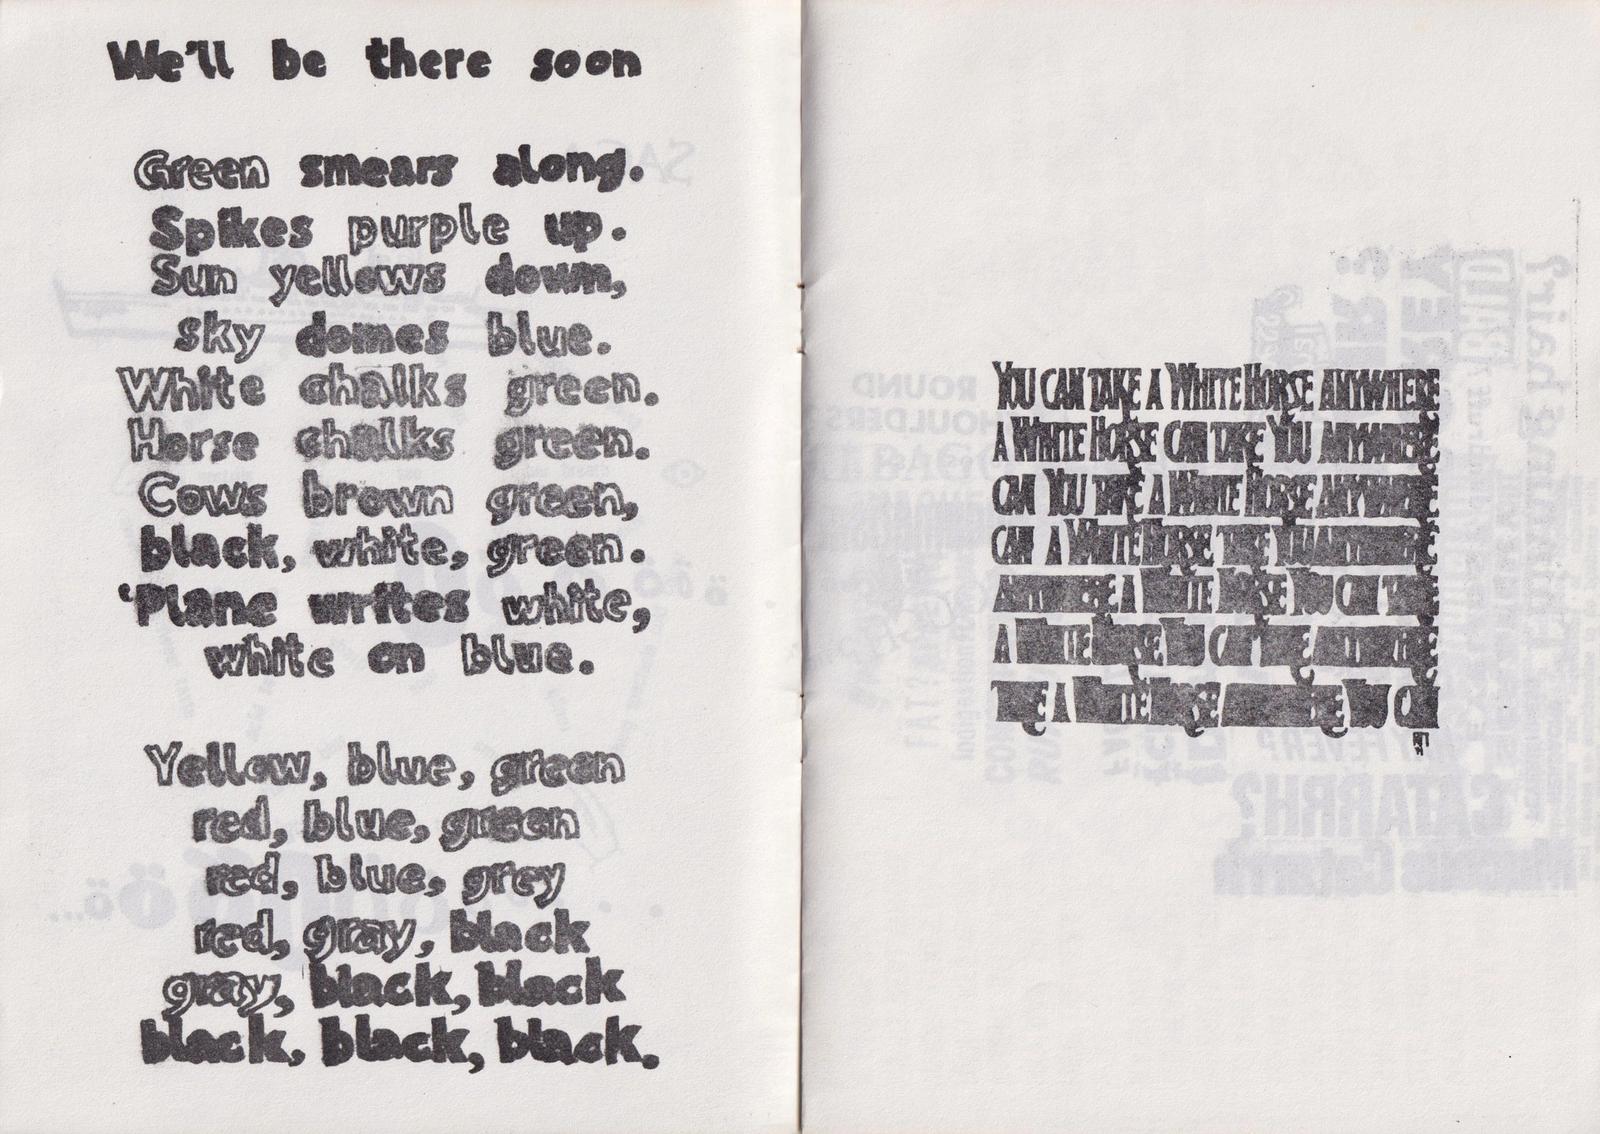 We'll be there soon
Green smears along.
Spikes purple up.
Sun yellows down,
sky domes blue.
White chalks green.
Horse chalks green.
Cows brown green,
black, white, green.
'Plane writes white,
white on blue.
Yellow, blue, green
red, blue, green
red, blue, grey
red, gray, black
gray, black, black
black, black, black.
YOU CAN TAKE A WHITE HORSE ANYWHERE
A WHITE HORSE CAN TAKE YOU ANYWHERE
CAN YOU TAKE A WHITE HORSE ANYWHERE
CAN A WHITE HORSE TAKE YOU ANYWHERE
ANYWHERE A WHITE HORSE YOU CAN TAKE
A WHITE HORSE YOU CAN TAKE ANYWHERE
TAKE A WHITE HORSE ANYWHERE YOU CAN